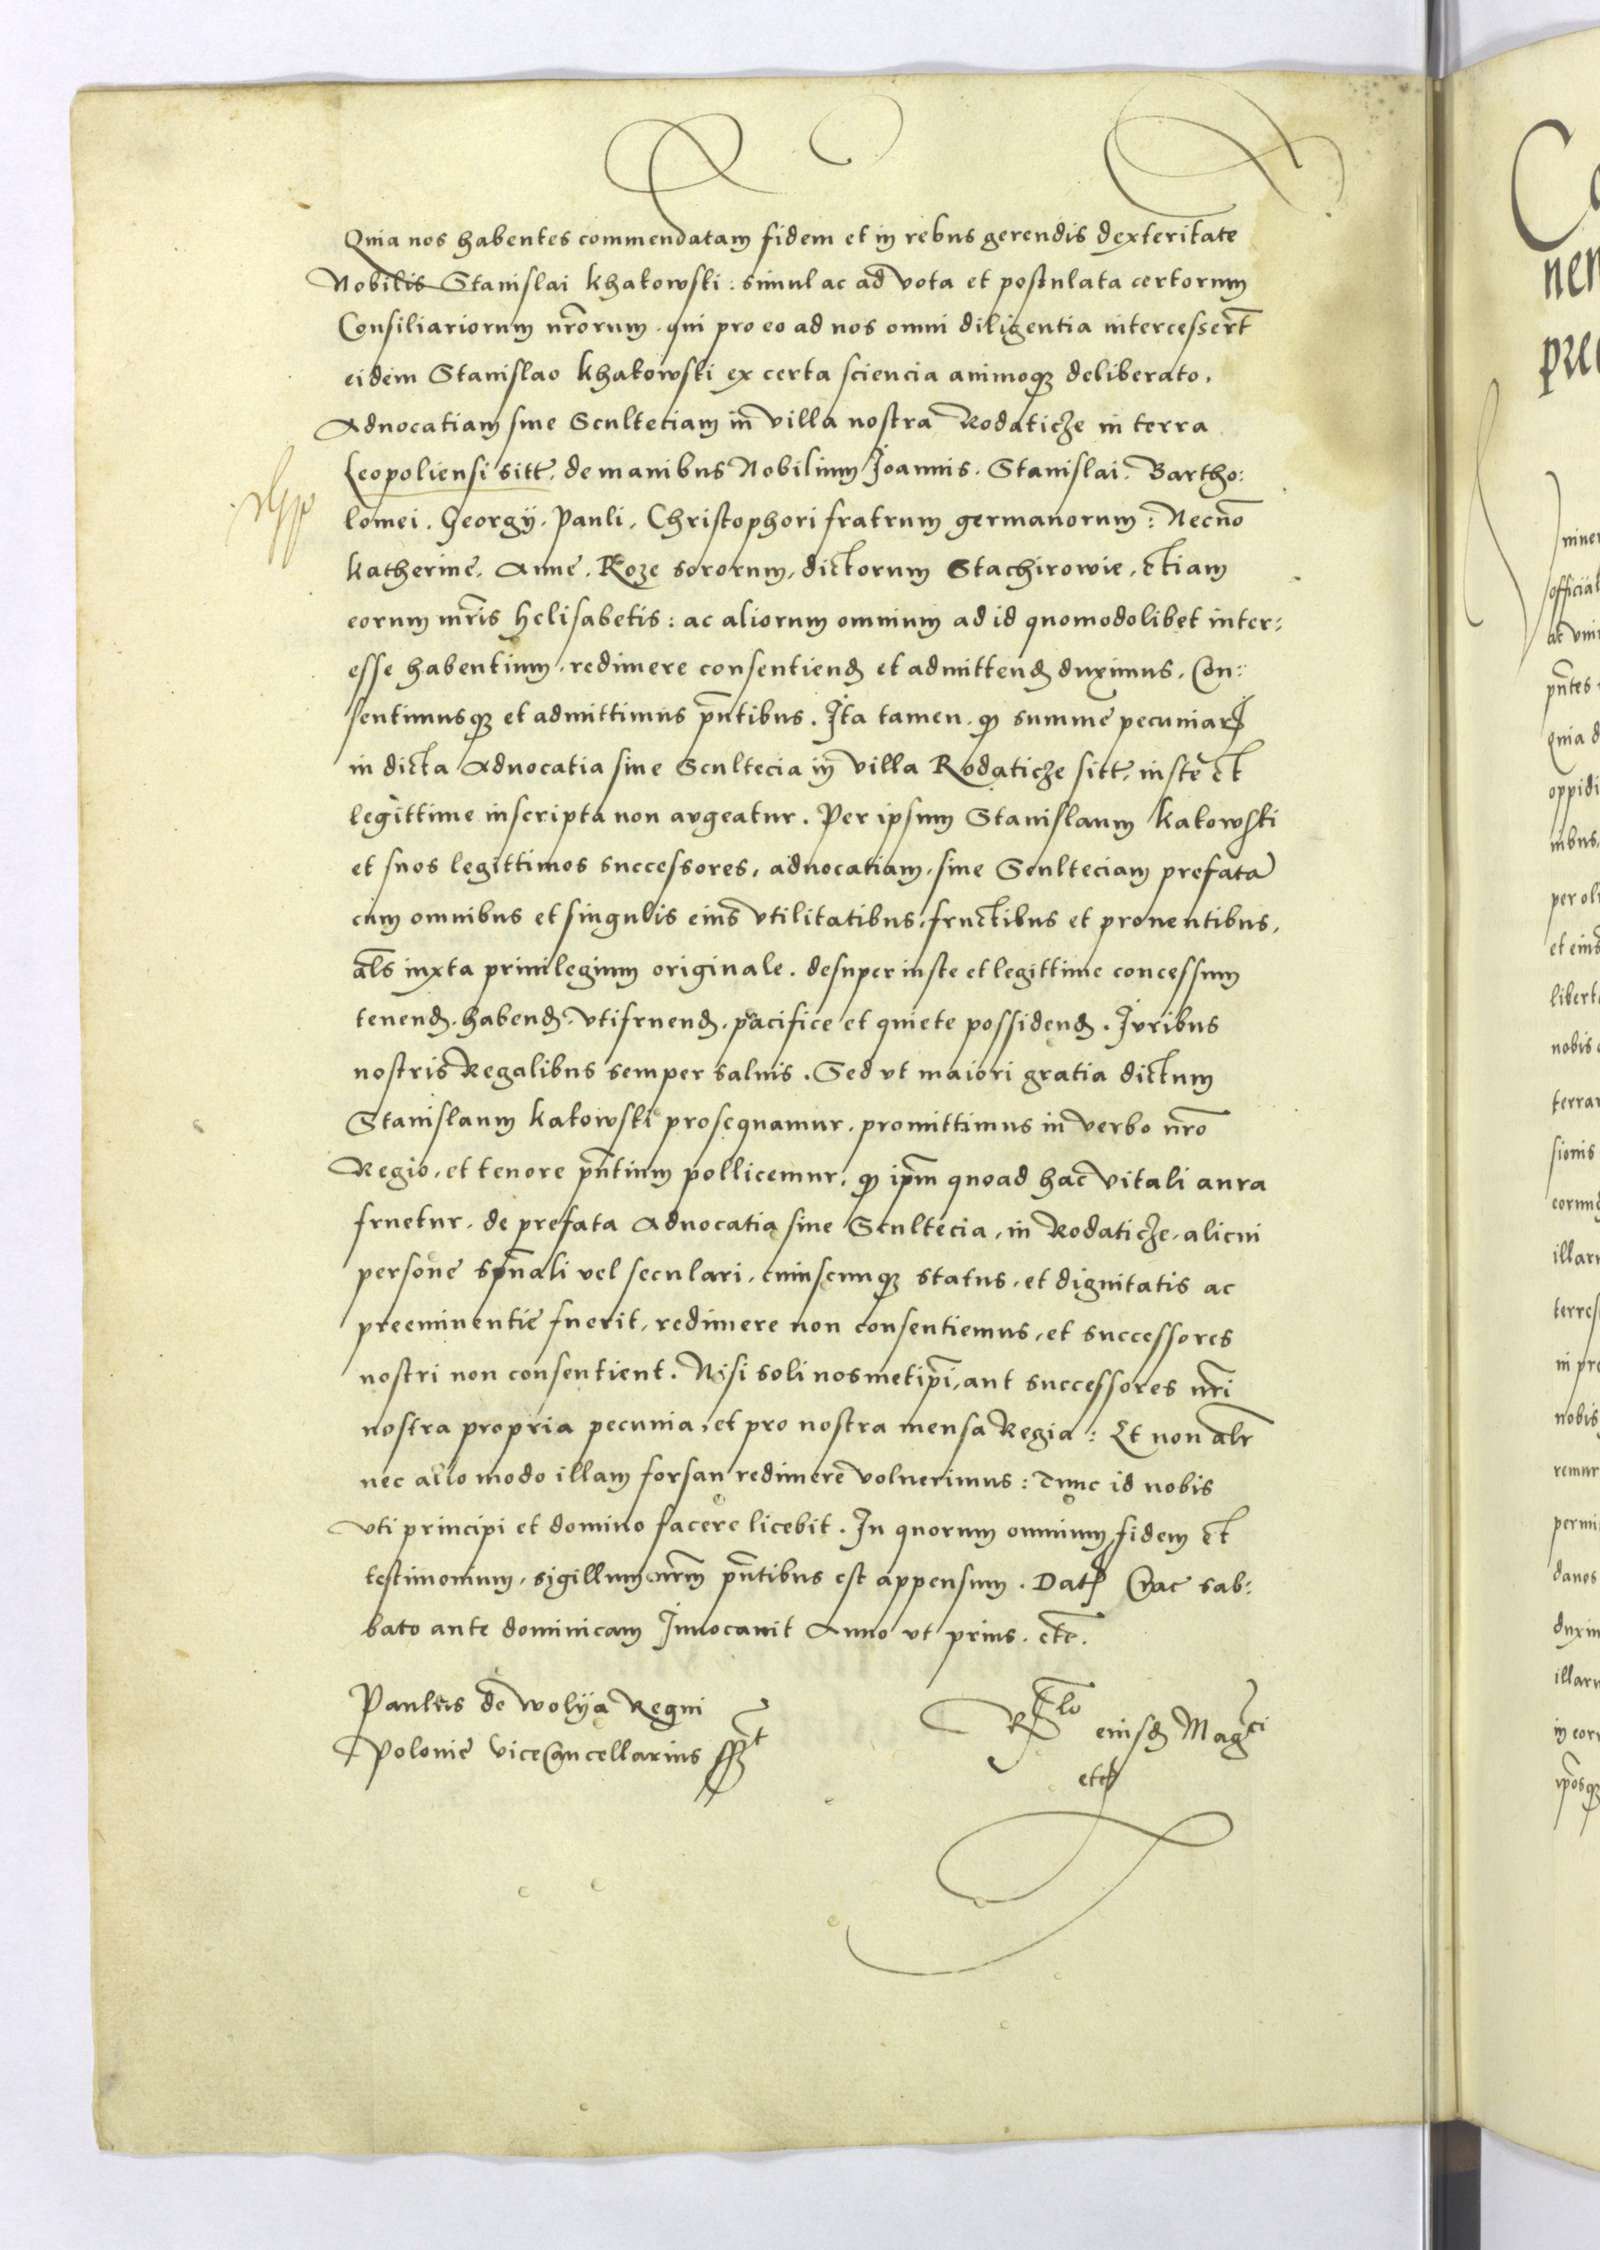 Quia nos habentes commendatam fidem et in rebus gerendis dexteritate
Nobilis Stanislai Khakowski : simul ac ad vota et postulata certorum
Consiliariorum nrorum . qui pro eo ad nos omni diligentia intercessert
eidem Stanislao Khakowski ex certa sciencia animoq3 deliberato .
Aduocatiam siue Sculteciam in villa nostra Rodaticze in terra
Leopoliensi sitt . de manibus Nobilium Joannis . Stanislai . Bartho:
lomei . Georgij . Pauli . Christophori fratrum germanorum : Necno
Katherine . Anne . Roze sororum , dictorum Stachirowie , etiam
eorum mris Helisabetis : ac aliorum omnium ad id quomodolibet inter:
esse habentium . redimere consentiend et admittend duximus . Con:
sentimusq3 et admittimus pntibus . Ita tamen . q summe pecuniar
in dicta Aduocatia siue Scultecia in villa Rodaticze sitt . iuste et
legittime inscripta non augeatur . Per ipsum Stanislaum Kakowski
et suos legittimos successores , aduocatiam , siue Sculteciam prefata
cum omnibus et singulis eius vtilitatibus , fructibus et prouentibus ,
als iuxta priuilegium originale . desuper iuste et legittime concessum
tenend . habend . vtifruend . pacifice et quiete possidend . Juribus
nostris Regalibus semper saluis . Sed vt maiori gratia dictum
Stanislaum Kakowski prosequamur . promittimus in verbo nro
Regio , et tenore pntium pollicemur , q ipm quoad hac vitali aura
fruetur . de prefata Aduocatia siue Scultecia , in Rodaticze , alicui
persone spuali vel seculari , cuiuscunq3 status , et dignitatis ac
preeminentie fuerit , redimere non consentiemus , et successores
nostri non consentient . Nisi soli nosmetipi , aut successores nri
nostra propria pecunia , et pro nostra mensa Regia : Et non alr
nec alio modo illam forsan redimere voluerimus : Tunc id nobis
vti principi et domino facere licebit . In quorum omnium fidem et
testimonium , sigillum nrm pntibus est appensum . Dat Crac sab:
bato ante dominicam Inuocauit Anno vt prius . etc .
Paulus de Wolija Regni
Polonie ViceCancellarius sst
Rlo eiusd Magci
etc